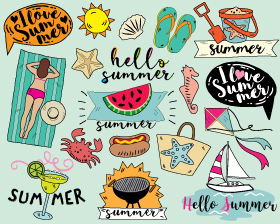 I love
Summer
summer
hello
summer
I love
Summer
summer
SUMMER
summer
Hello Summer